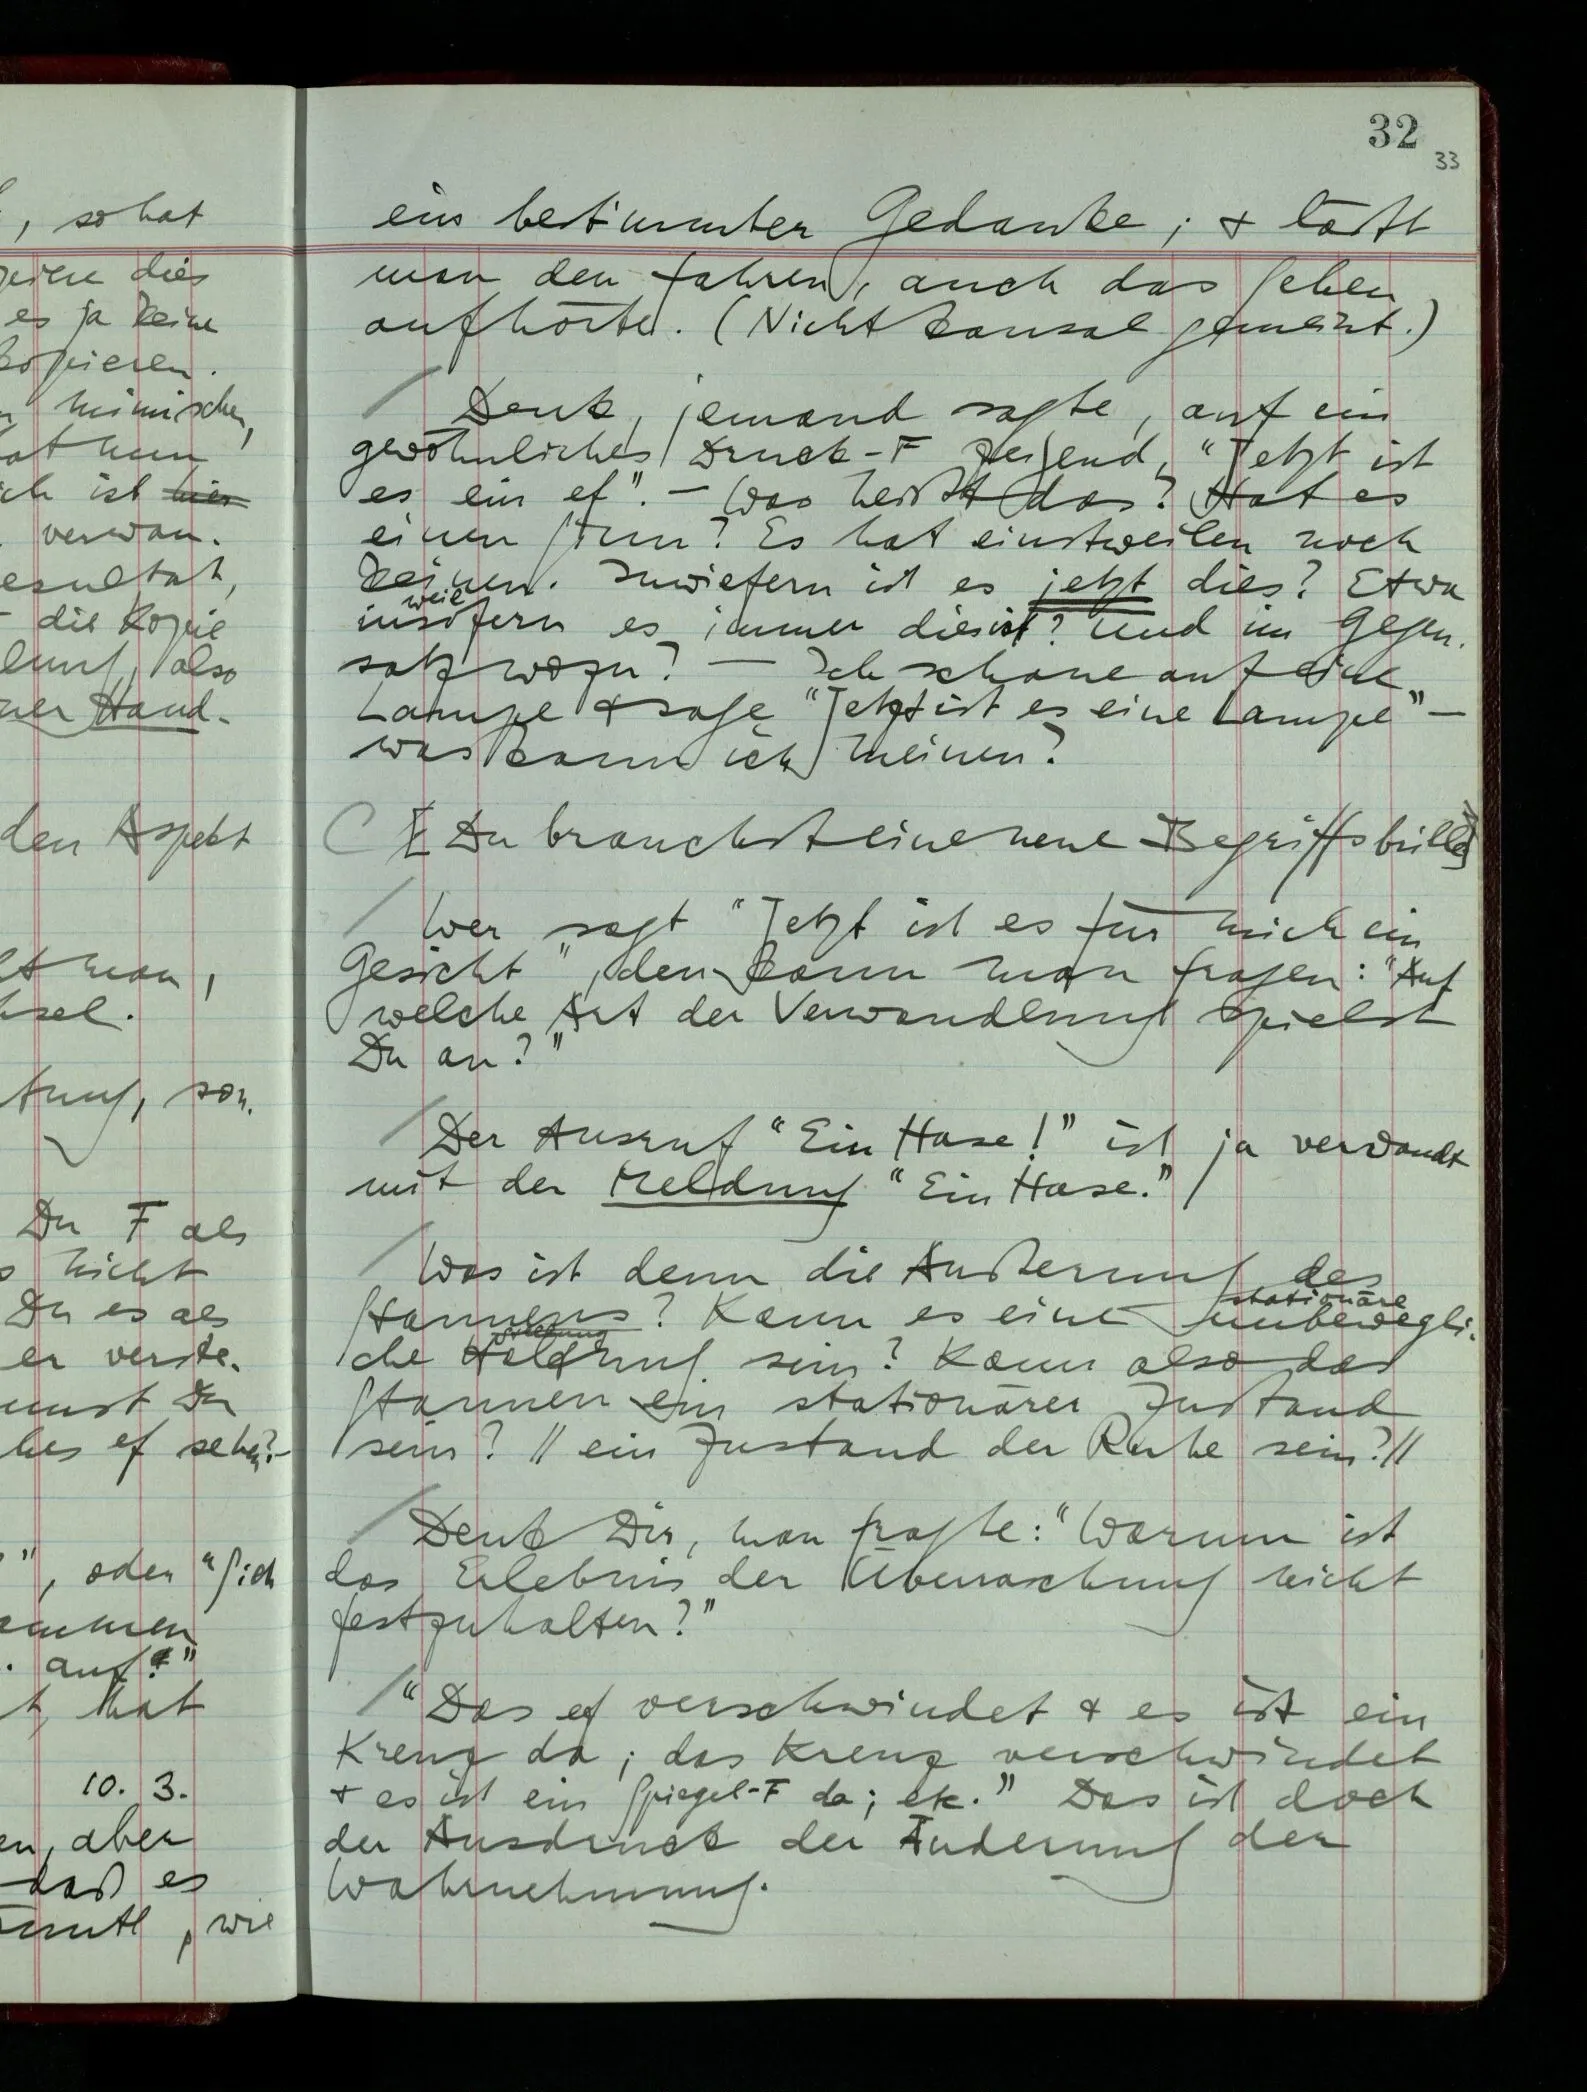 , so hat
dies
es ja keine
kopieren.
mimischen,
ist hier
verwan.
die Kopie
also
Hand-
den Aspekt
man,
son.
Du F als
nicht
Du es als
er verste.
Du
ef sehe?-
", oder "Sich
auf?"
hat
10. 3.
aber
daß es
, wie
32
33
ein bestimmter Gedanke; & läßt
man den fahren, auch das Sehen
aufhörte. (Nicht kausal gemeint.)
/ Denk, jemand sagte, auf ein
gewöhnliches Druck-F zeigend, "Jetzt ist
es ein ef". – Was heißt das? Hat es
einen Sinn? Es hat einstweilen noch
keinen. Inwiefern ist es jetzt dies? Etwa
weil
insofern es immer dies ist? Und im Gegen.
satz wozu? — Ich schaue auf eine
Lampe & sage "Jetzt ist es eine Lampe" –
was kann ich meinen?
C [Du brauchst eine neue Begriffsbrille]
/ Wer sagt "Jetzt ist es für mich ein
Gesicht", den kann man fragen: "Auf
welche Art der Verwandlung spielst
Du an?"
/ Der Ausruf "Ein Hase!" ist ja verwandt
mit der Meldung "Ein Hase."
/ Was ist denn die Äußerung des
stationäre
Staunens? Kann es eine unbewegli.
Stellung
che Haltung sein? Kann also das
Staunen ein stationärer Zustand
sein? // ein Zustand der Ruhe sein? //
/ Denk Dir, man fragte: "Warum ist
das Erlebnis der Überraschung nicht
festzuhalten?"
/ "Das ef verschwindet & es ist ein
Kreuz da; das Kreuz verschwindet
& es ist ein Spiegel-F da; etc." Das ist doch
der Ausdruck der Änderung der
Wahrnehmung.